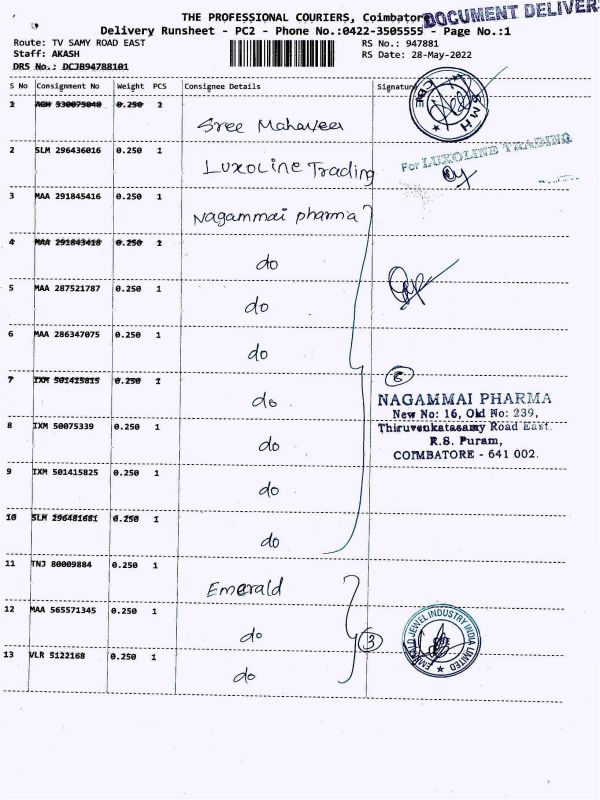 THE PROFESSIONAL COURIERS, Coimbatore
DOCUMENT DELIVER
Delivery Runsheet - PC2 - Phone No.:0422-3505555 - Page No.:1
Route: TV SAMY ROAD EAST RS No.: 947881
Staff: AKASH RS Date: 28-May-2022
DRS No.: DCJB94788101
S No Consignment No Weight PCS Consignee Details Signature
1 AGH 530075040 0.250 1
Sree Mahaveer
CBE SMH
2 SLM 296436016 0.250 1
Luxoline Trading
For LUXOLINE TRADING
3 MAA 291845416 0.250 1
Nagammai pharma
4 MAA 291843418 0.250 1
do
5 MAA 287521787 0.250 1
do
6 MAA 286347075 0.250 1
do
7 IXM 501415815 0.250 1
do
8
NAGAMMAI PHARMA
New No: 16, Old No: 239,
Thiruvenkatasamy Road East.
R.S. Puram,
COIMBATORE - 641 002.
8 IXM 50075339 0.250 1
do
9 IXM 501415825 0.250 1
do
10 SLM 296481681 0.250 1
do
11 TNJ 80009884 0.250 1
Emerald
12 MAA 565571345 0.250 1
do
3
EMERALD JEWEL INDUSTRY INDIA LIMITED
CBE
13 VLR 5122168 0.250 1
do